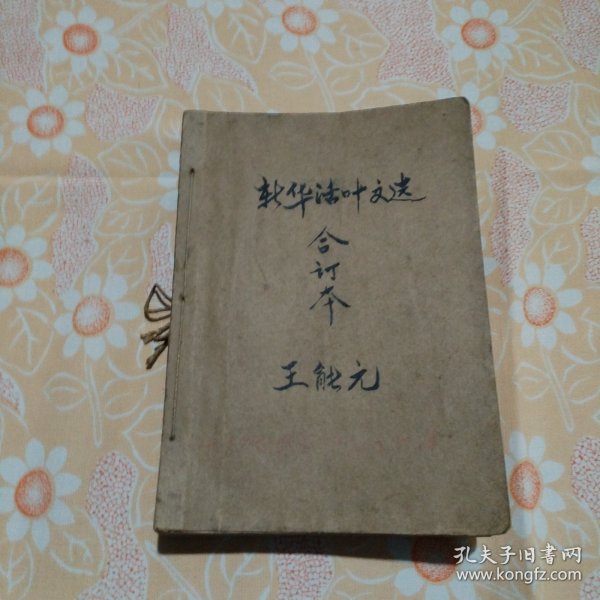 新华活叶文选
合
订
本
王能元
孔夫子旧書网
www.kongfz.com